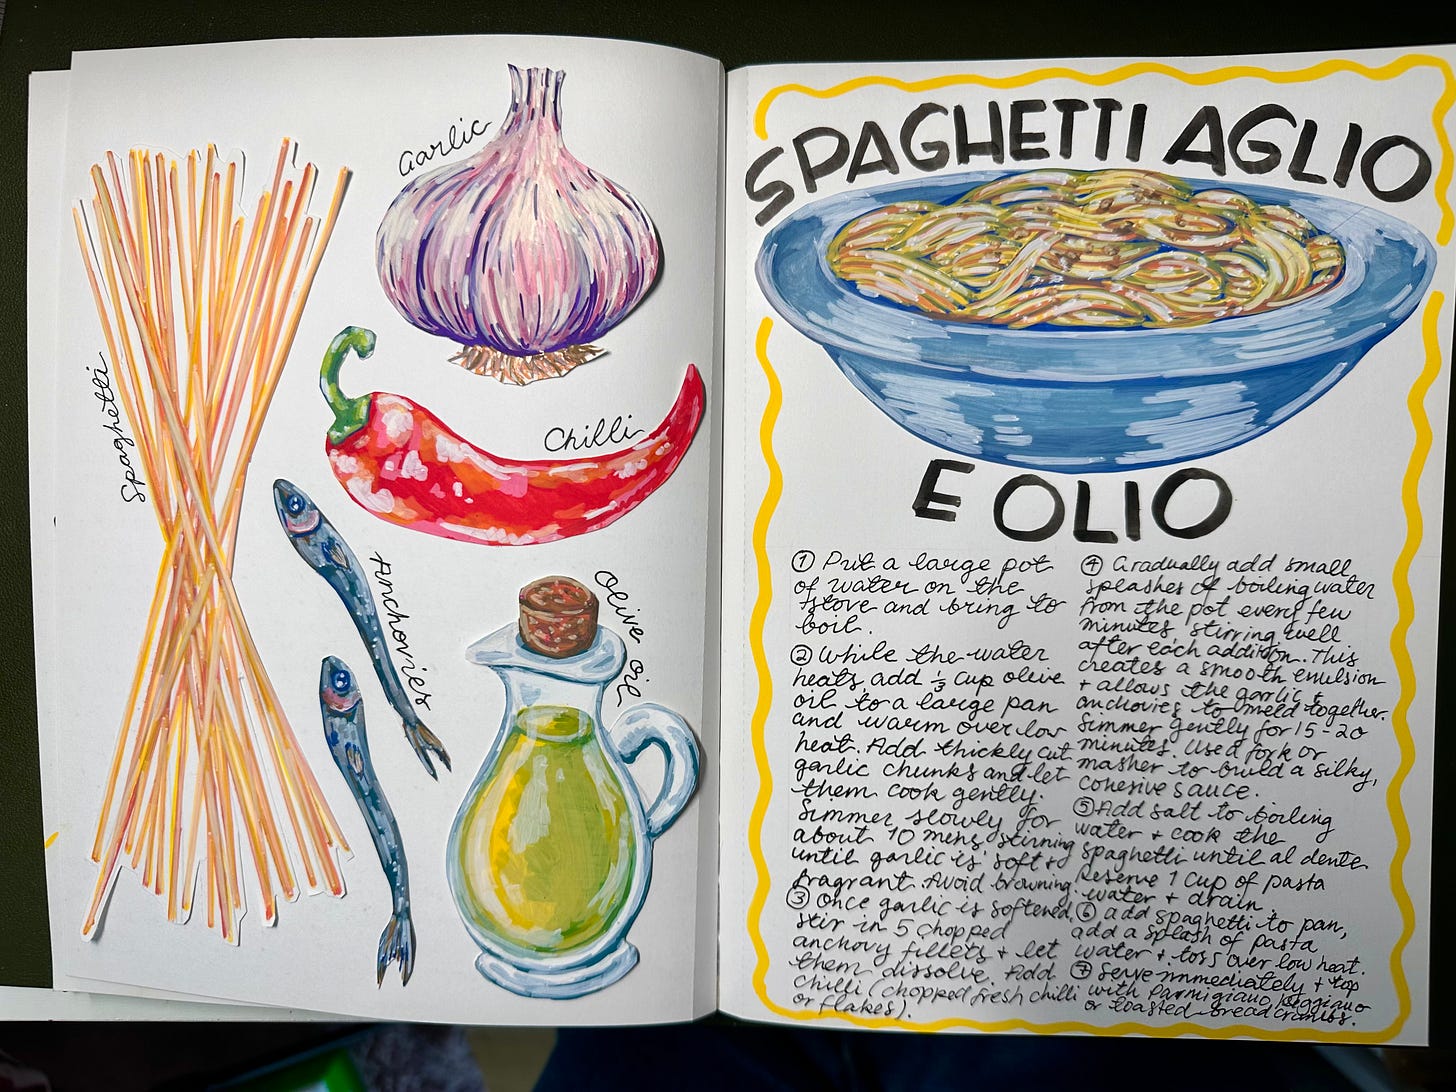 Garlic
Spaghetti
Chilli
Anchovies
Olive oil
SPAGHETTI AGLIO
E OLIO
① Put a large pot
of water on the
stove and bring to
boil.
② While the water
heats, add ⅓ cup olive
oil to a large pan
and warm over low
heat. Add thickly cut
garlic chunks and let
them cook gently.
Simmer slowly for
about 10 mins stirring
until garlic is soft +
fragrant. Avoid browning.
③ Once garlic is softened,
stir in 5 chopped
anchovy fillets + let
them dissolve. Add
chilli (chopped fresh chilli
or flakes).
④ Gradually add small
splashes of boiling water
from the pot every few
minutes, stirring well
after each addition. This
creates a smooth emulsion
+ allows the garlic +
anchovies to meld together.
Simmer gently for 15-20
minutes. Use a fork or
masher to build a silky,
cohesive sauce.
⑤ Add salt to boiling
water + cook the
spaghetti until al dente.
Reserve 1 cup of pasta
water + drain
⑥ add spaghetti to pan,
add a splash of pasta
water + toss over low heat.
⑦ Serve immediately + top
with Parmigiano Reggiano
or toasted bread crumbs.